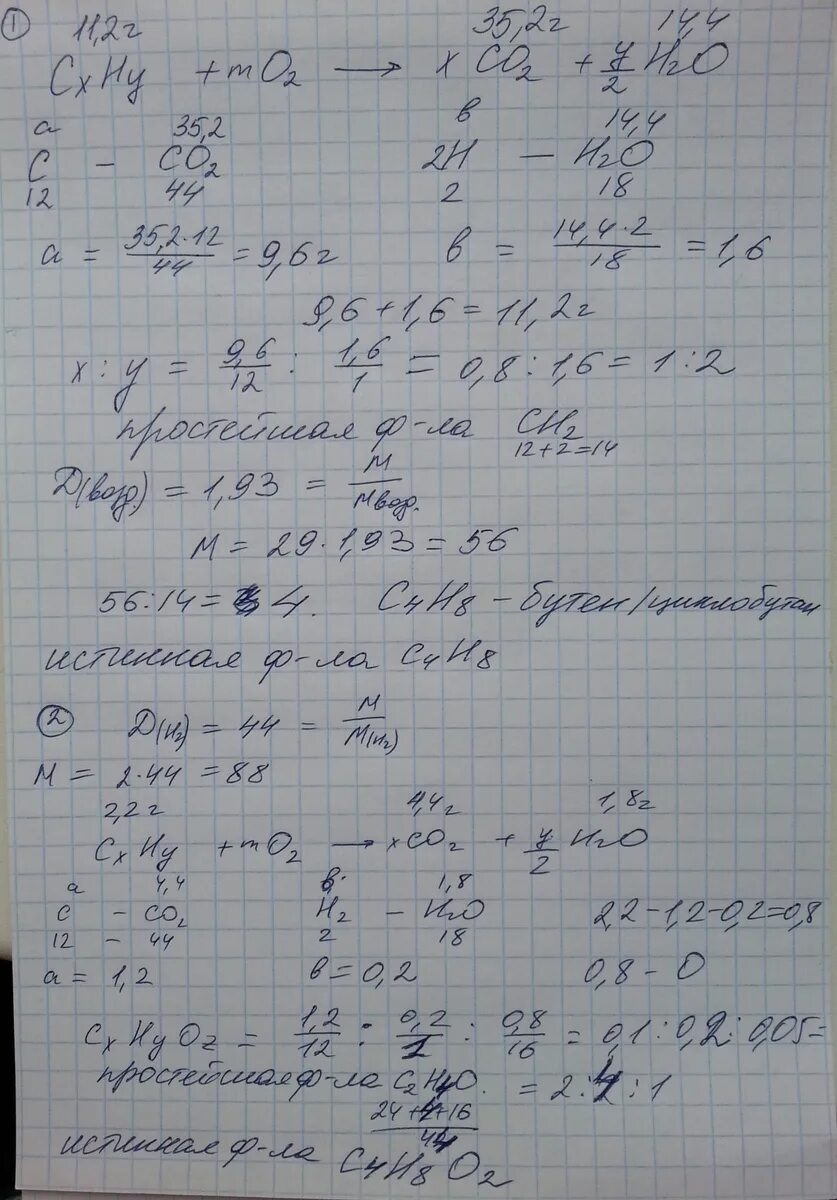 1 11,2г 35,2г 14,4
CxHy + mO2 → x CO2 + y/2 H2O
a 35,2 в 14,4
C – CO2 2H – H2O
12 44 2 18
a = 35,2·12/44 = 9,6г в = 14,4·2/18 = 1,6
9,6 + 1,6 = 11,2г
x : y = 9,6/12 : 1,6/1 = 0,8 : 1,6 = 1 : 2
простейшая ф-ла CH2
12+2=14
Д(возд.) = 1,93 = M/Mвозд.
M = 29·1,93 = 56
56:14 = 4. C4H8 – бутен/циклобутан
истинная ф-ла C4H8
2 Д(H2) = 44 = M/M(H2)
M = 2·44 = 88
2,2г 4,4г 1,8г
CxHy + mO2 → xCO2 + y/2 H2O
a 4,4 в 1,8
C – CO2 H2 – H2O 2,2–1,2–0,2=0,8
12 – 44 2 18
a = 1,2 в = 0,2 0,8 – O
CxHyOz = 1,2/12 : 0,2/1 : 0,8/16 = 0,1 : 0,2 : 0,05 =
простейшая ф-ла C2H4O. = 2:4:1
24+4+16
44
истинная ф-ла C4H8O2